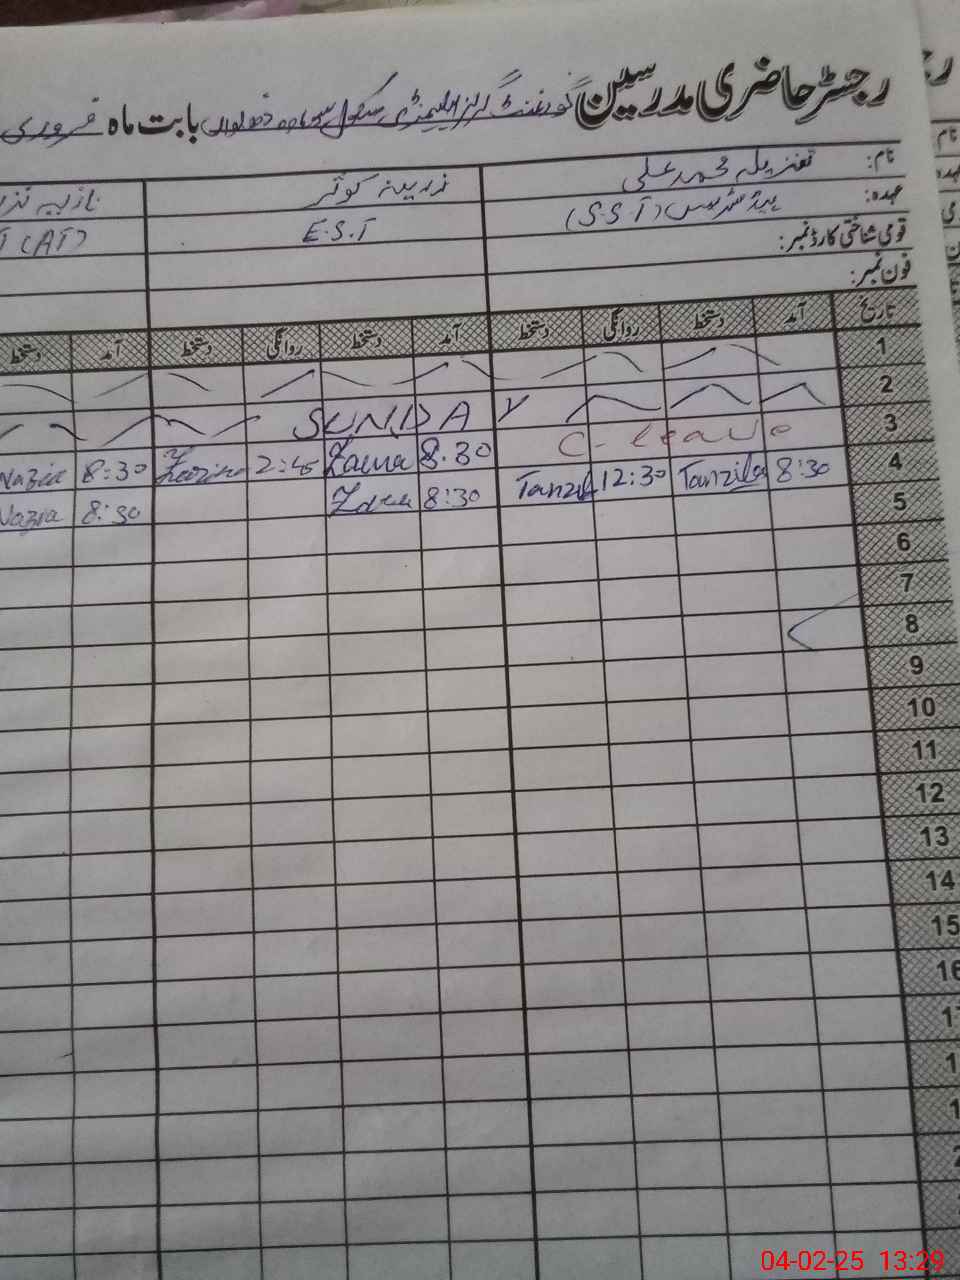 رجسٹر حاضری مدرسین گورنمنٹ گرلز ایلیمنٹری سکول بابت ماہ فروری
نام: تنزیلہ محمد علی زرینہ کوثر نازیہ
عہدہ: ہیڈ مسٹریس (S.S.T) E.S.T (AT)
قومی شناختی کارڈ نمبر:
فون نمبر:
تاریخ آمد دستخط روانگی دستخط آمد دستخط روانگی دستخط آمد دستخط
1
2 SUNDAY
3 C-leave 8.30 Zarina 2:45 8:30 Nazia
4 8:30 Tanzila 12:30 Tanzil 8:30 8:30 Nazia
5
6
7
8
9
10
11
12
13
14
15
16
04-02-25 13:29